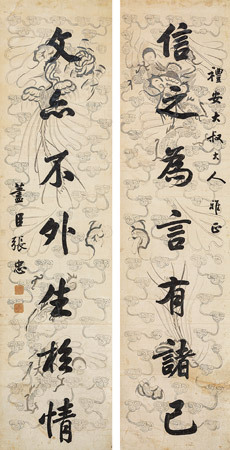 禮安大叔大人雅正
信之為言有諸己
文亦不外生於情
藎臣張忠